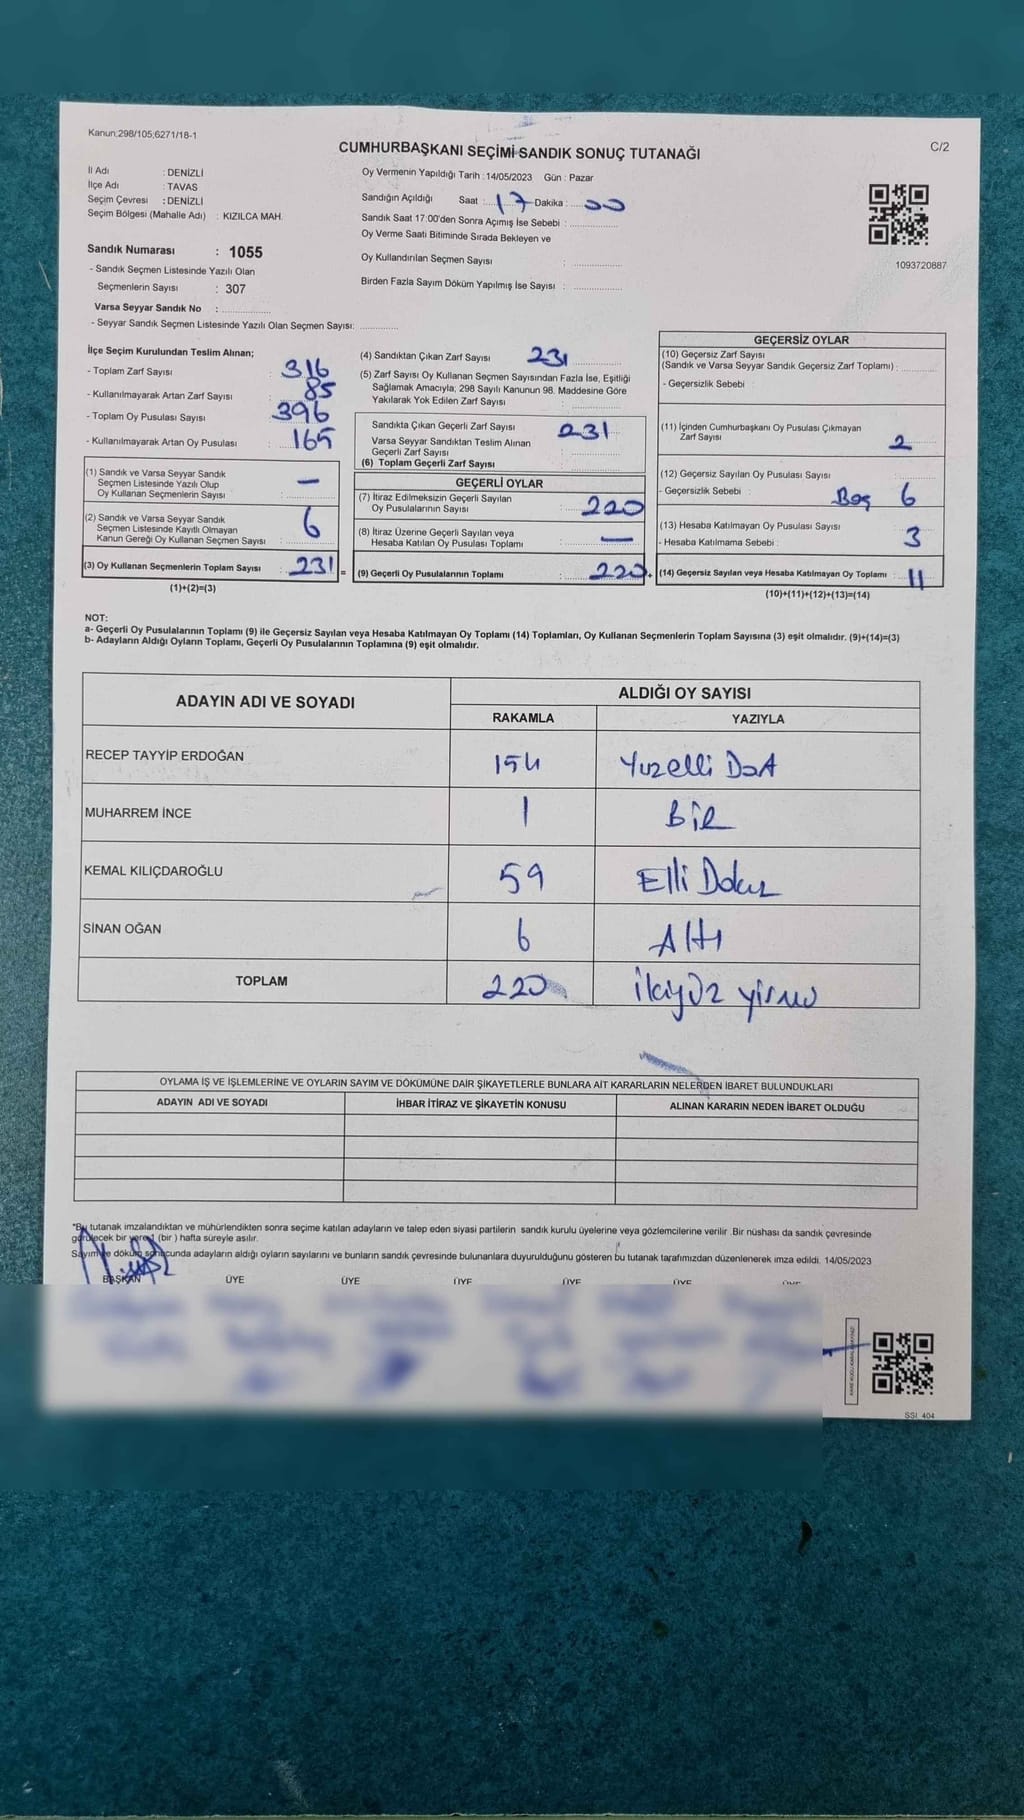 Kanun;298/105;6271/18-1
C/2
CUMHURBAŞKANI SEÇİMİ SANDIK SONUÇ TUTANAĞI
İl Adı : DENİZLİ
İlçe Adı : TAVAS
Seçim Çevresi : DENİZLİ
Seçim Bölgesi (Mahalle Adı) : KIZILCA MAH.
Oy Vermenin Yapıldığı Tarih : 14/05/2023 Gün : Pazar
Sandığın Açıldığı Saat : 17 Dakika : 00
Sandık Saat 17:00'den Sonra Açımış İse Sebebi :
Oy Verme Saati Bitiminde Sırada Bekleyen ve
Oy Kullandırılan Seçmen Sayısı :
Birden Fazla Sayım Döküm Yapılmış İse Sayısı :
1093720887
Sandık Numarası : 1055
- Sandık Seçmen Listesinde Yazılı Olan
Seçmenlerin Sayısı : 307
Varsa Seyyar Sandık No :
- Seyyar Sandık Seçmen Listesinde Yazılı Olan Seçmen Sayısı:
İlçe Seçim Kurulundan Teslim Alınan;
- Toplam Zarf Sayısı : 316
- Kullanılmayarak Artan Zarf Sayısı : 85
- Toplam Oy Pusulası Sayısı : 396
- Kullanılmayarak Artan Oy Pusulası : 165
(1) Sandık ve Varsa Seyyar Sandık
Seçmen Listesinde Yazılı Olup
Oy Kullanan Seçmenlerin Sayısı : —
(2) Sandık ve Varsa Seyyar Sandık
Seçmen Listesinde Kayıtlı Olmayan
Kanun Gereği Oy Kullanan Seçmen Sayısı : 6
(3) Oy Kullanan Seçmenlerin Toplam Sayısı : 231 =
(1)+(2)=(3)
(4) Sandıktan Çıkan Zarf Sayısı 231
(5) Zarf Sayısı Oy Kullanan Seçmen Sayısından Fazla İse, Eşitliği
Sağlamak Amacıyla; 298 Sayılı Kanunun 98. Maddesine Göre
Yakılarak Yok Edilen Zarf Sayısı :
Sandıkta Çıkan Geçerli Zarf Sayısı : 231
Varsa Seyyar Sandıktan Teslim Alınan
Geçerli Zarf Sayısı :
(6) Toplam Geçerli Zarf Sayısı
GEÇERLİ OYLAR
(7) İtiraz Edilmeksizin Geçerli Sayılan
Oy Pusulalarının Sayısı : 220
(8) İtiraz Üzerine Geçerli Sayılan veya
Hesaba Katılan Oy Pusulası Toplamı : —
(9) Geçerli Oy Pusulalarının Toplamı : 220 +
GEÇERSİZ OYLAR
(10) Geçersiz Zarf Sayısı
(Sandık ve Varsa Seyyar Sandık Geçersiz Zarf Toplamı) :
- Geçersizlik Sebebi :
(11) İçinden Cumhurbaşkanı Oy Pusulası Çıkmayan
Zarf Sayısı 2
(12) Geçersiz Sayılan Oy Pusulası Sayısı
- Geçersizlik Sebebi : Boş 6
(13) Hesaba Katılmayan Oy Pusulası Sayısı
- Hesaba Katılmama Sebebi : 3
(14) Geçersiz Sayılan veya Hesaba Katılmayan Oy Toplamı : 11
(10)+(11)+(12)+(13)=(14)
NOT:
a- Geçerli Oy Pusulalarının Toplamı (9) ile Geçersiz Sayılan veya Hesaba Katılmayan Oy Toplamı (14) Toplamları, Oy Kullanan Seçmenlerin Toplam Sayısına (3) eşit olmalıdır. (9)+(14)=(3)
b- Adayların Aldığı Oyların Toplamı, Geçerli Oy Pusulalarının Toplamına (9) eşit olmalıdır.
ADAYIN ADI VE SOYADI ALDIĞI OY SAYISI
RAKAMLA YAZIYLA
RECEP TAYYİP ERDOĞAN 154 Yuzelli Dört
MUHARREM İNCE 1 Bir
KEMAL KILIÇDAROĞLU 59 Elli Dokuz
SİNAN OĞAN 6 Altı
TOPLAM 220 ikiyüz yirmi
OYLAMA İŞ VE İŞLEMLERİNE VE OYLARIN SAYIM VE DÖKÜMÜNE DAİR ŞİKAYETLERLE BUNLARA AİT KARARLARIN NELERDEN İBARET BULUNDUKLARI
ADAYIN ADI VE SOYADI İHBAR İTİRAZ VE ŞİKAYETİN KONUSU ALINAN KARARIN NEDEN İBARET OLDUĞU
*Bu tutanak imzalandıktan ve mühürlendikten sonra seçime katılan adayların ve talep eden siyasi partilerin sandık kurulu üyelerine veya gözlemcilerine verilir. Bir nüshası da sandık çevresinde
görülecek bir yere 1 (bir ) hafta süreyle asılır.
Sayım ve döküm sonucunda adayların aldığı oyların sayılarını ve bunların sandık çevresinde bulunanlara duyurulduğunu gösteren bu tutanak tarafımızdan düzenlenerek imza edildi. 14/05/2023
BAŞKAN ÜYE ÜYE ÜYE ÜYE ÜYE ÜYE
SSI_404